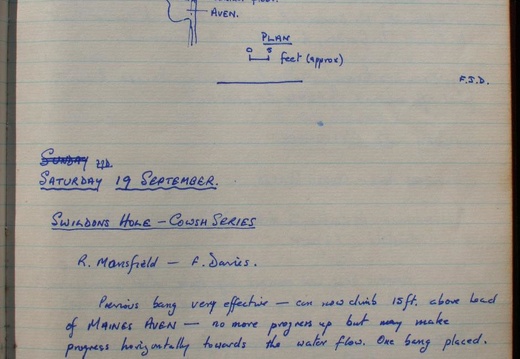 AVEN.
PLAN
0 5
feet (approx)
F.J.D.
SUNDAY
SATURDAY 19 SEPTEMBER.
SWILDONS HOLE - COWSH SERIES
R. Mansfield - F. Davies.
Previous bang very effective - can now climb 15ft. above head
of MAINES AVEN - no more progress up but may make
progress horizontally towards the water flow. One bang placed.